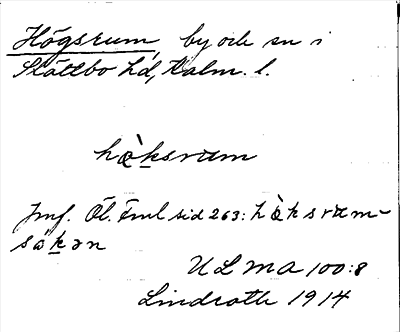 Högsrum, by och sn i
Slättbo hd, Kalm. l.
hæ̀ksrum
Jmf. Öl. Fml sid 263: hæ̀ksrum-
sɷkən
ULMA 100:8
Lindroth 1914